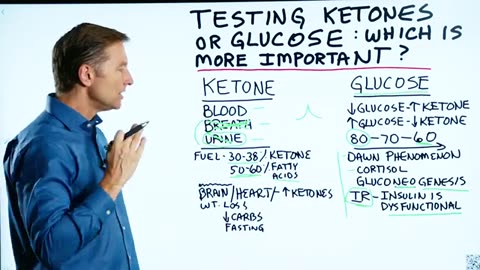 TESTING KETONES
OR GLUCOSE: WHICH IS
MORE IMPORTANT?
KETONE
BLOOD
BREATH
URINE
FUEL · 30-38% / KETONE
50-60% / FATTY
ACIDS
BRAIN/HEART/- ↑ KETONES
WT. LOSS
↓ CARBS
FASTING
GLUCOSE
↓GLUCOSE-↑ KETONE
↑GLUCOSE-↓KETONE
80-70-60
DAWN PHENOMENON
- CORTISOL
GLUCONEOGENESIS
IR - INSULIN IS
DYSFUNCTIONAL